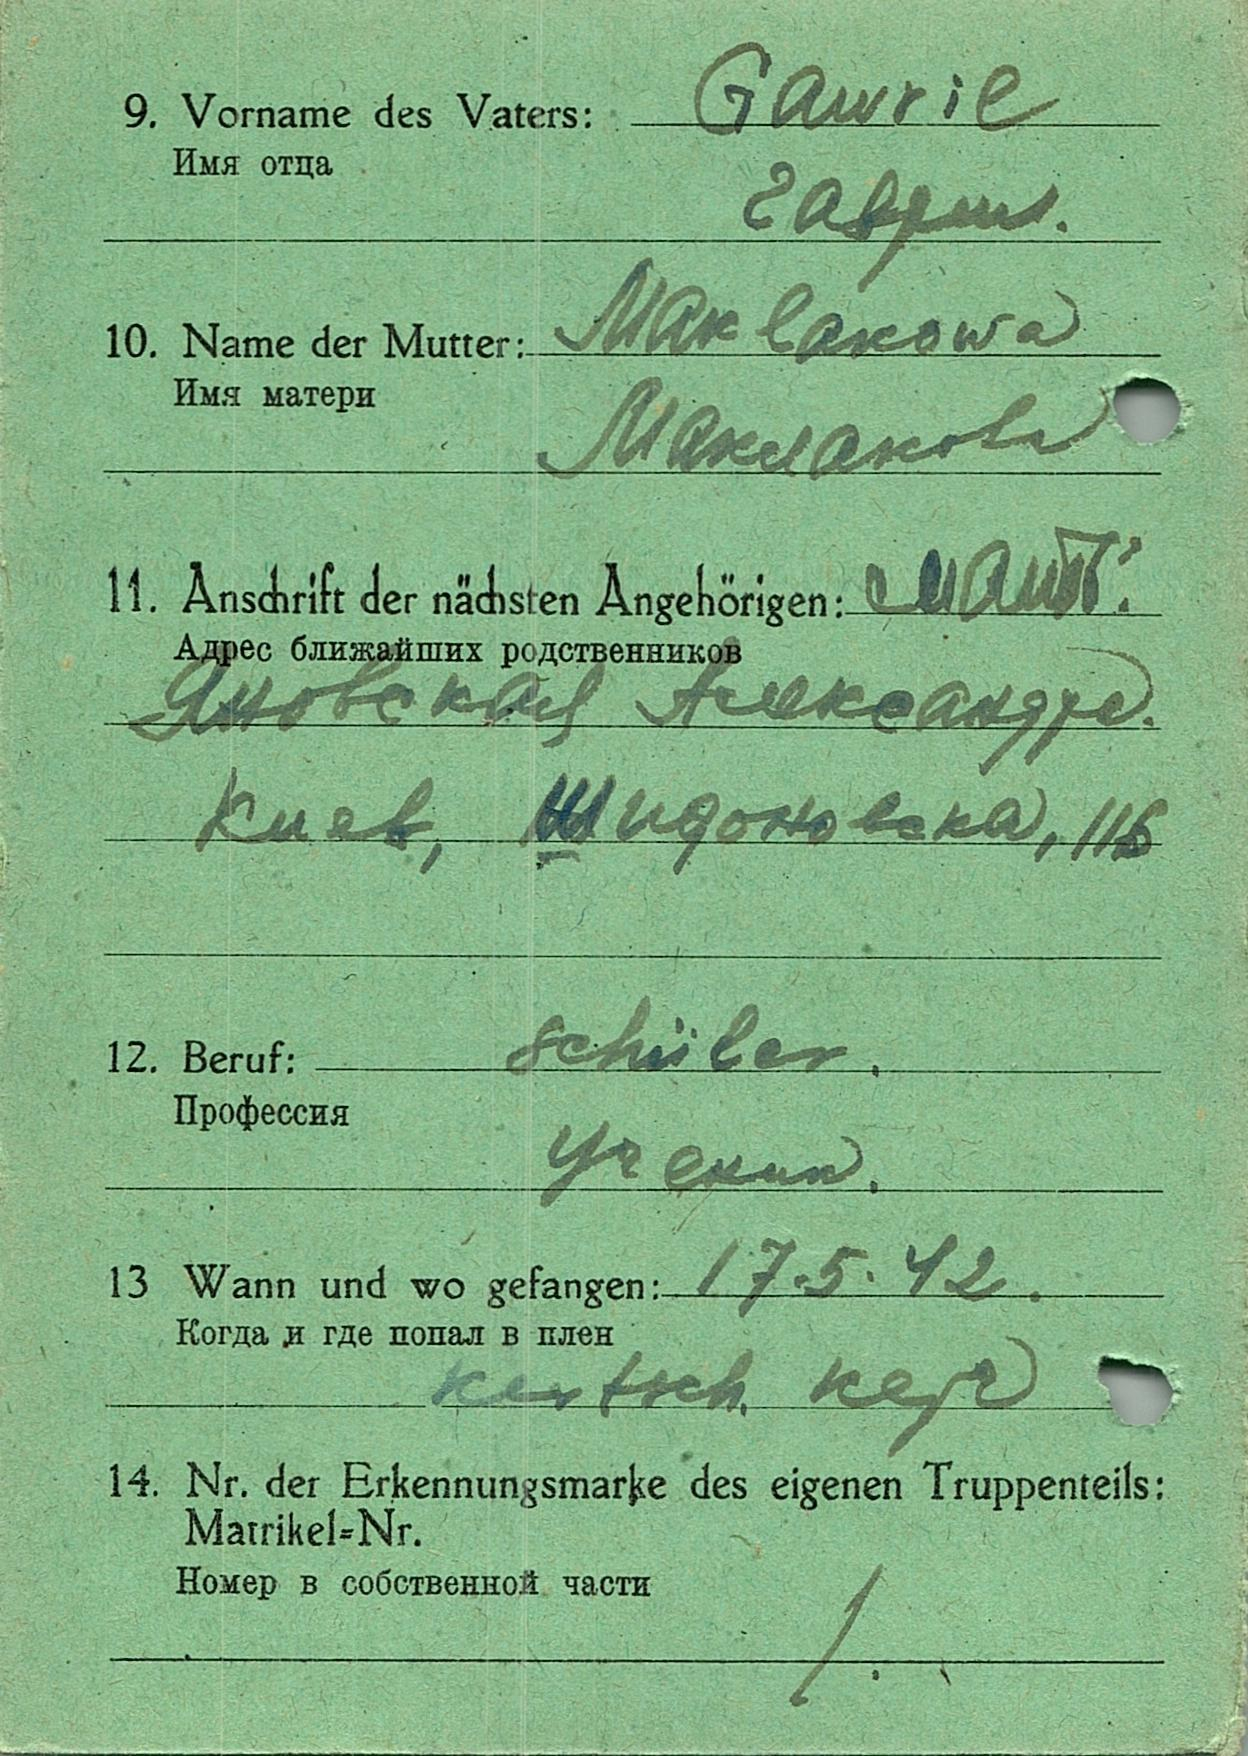 9. Vorname des Vaters: Gawril
Имя отца
Гаврил.
10. Name der Mutter: Maklakowa
Имя матери
Маклакова
11. Anschrift der nächsten Angehörigen: мать:
Адрес ближайших родственников
Яновская Александра.
Киев,
12. Beruf: Schüler.
Профессия
Ученик.
13 Wann und wo gefangen: 17.5.42.
Когда и где попал в плен
Kertsch. Керч
14. Nr. der Erkennungsmarke des eigenen Truppenteils:
Matrikel=Nr.
Номер в собственной части
/.